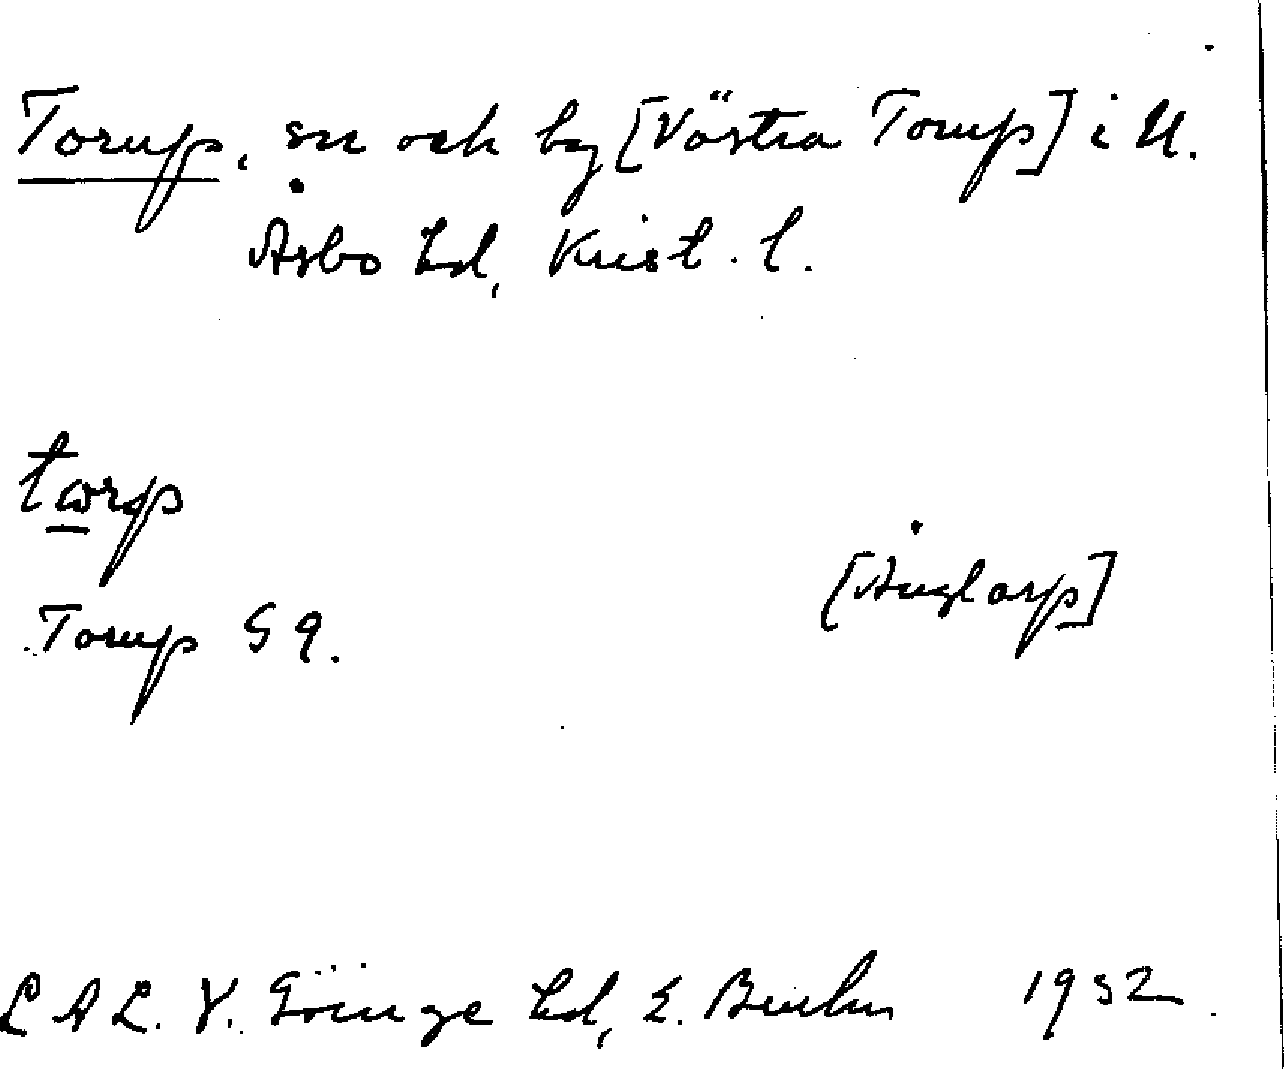 Torup, sn och by [Västra Torup] i N.
Åsbo hd, Krist. l.
tɷrp
Torup 59.
[Änglarp]
L A L. V. Göinge hd, E. 1932